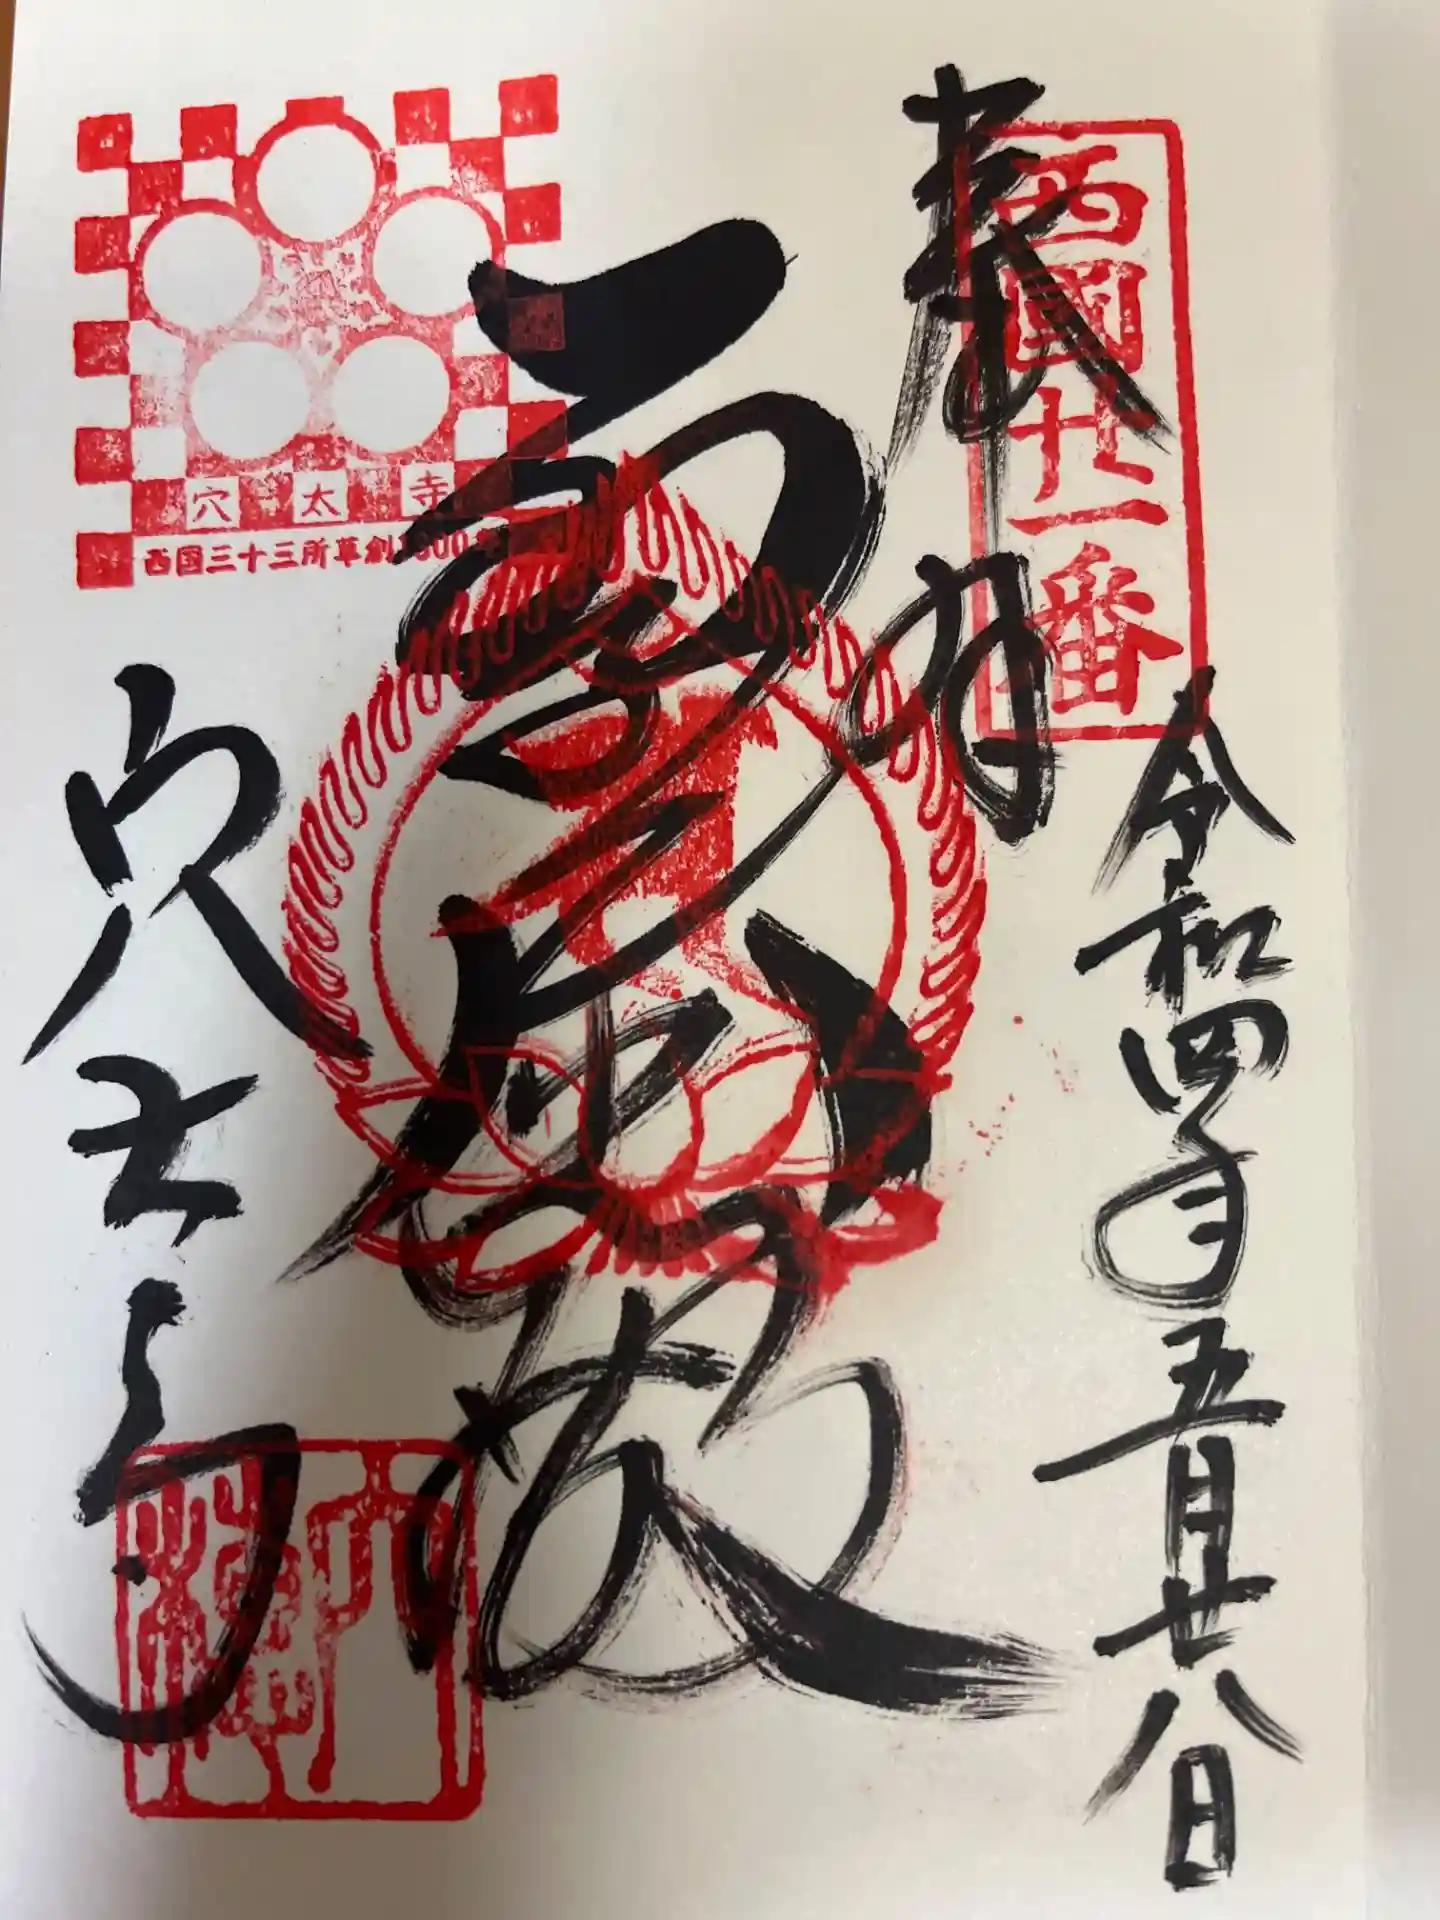 西國廿一番
奉拝
令和四年五月廿八日
穴太寺
西国三十三所草創1300年
穴太寺